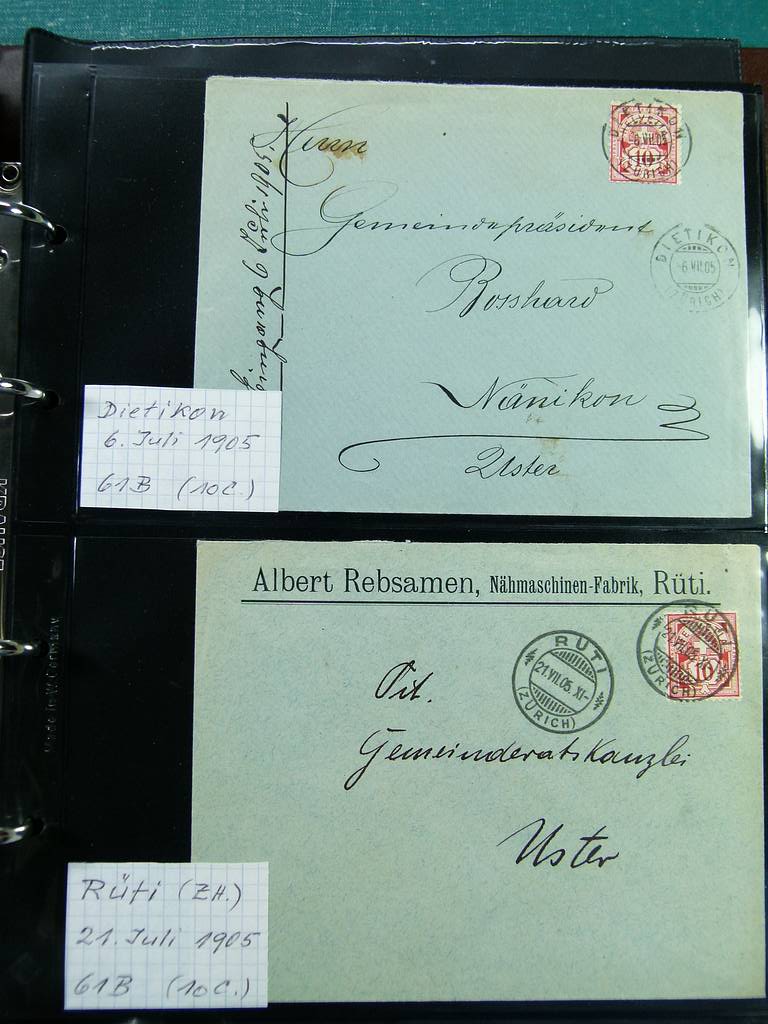 Herrn
Gemeindepräsident
Bosshard
Nänikon
Uster
HELVETIA
10
DIETIKON
6.VII.05
(ZÜRICH)
DIETIKON
6.VII.05
(ZÜRICH)
Dietikon
6. Juli 1905
61B (10C.)
Albert Rebsamen, Nähmaschinen-Fabrik, Rüti.
RÜTI
21.VII.05. XI-
(ZÜRICH)
RÜTI
21.VII.05. XI-
(ZÜRICH)
10
Tit.
Gemeinderatskanzlei
Uster
Rüti (ZH.)
21. Juli 1905
61B (10C.)
Made in W. Germany